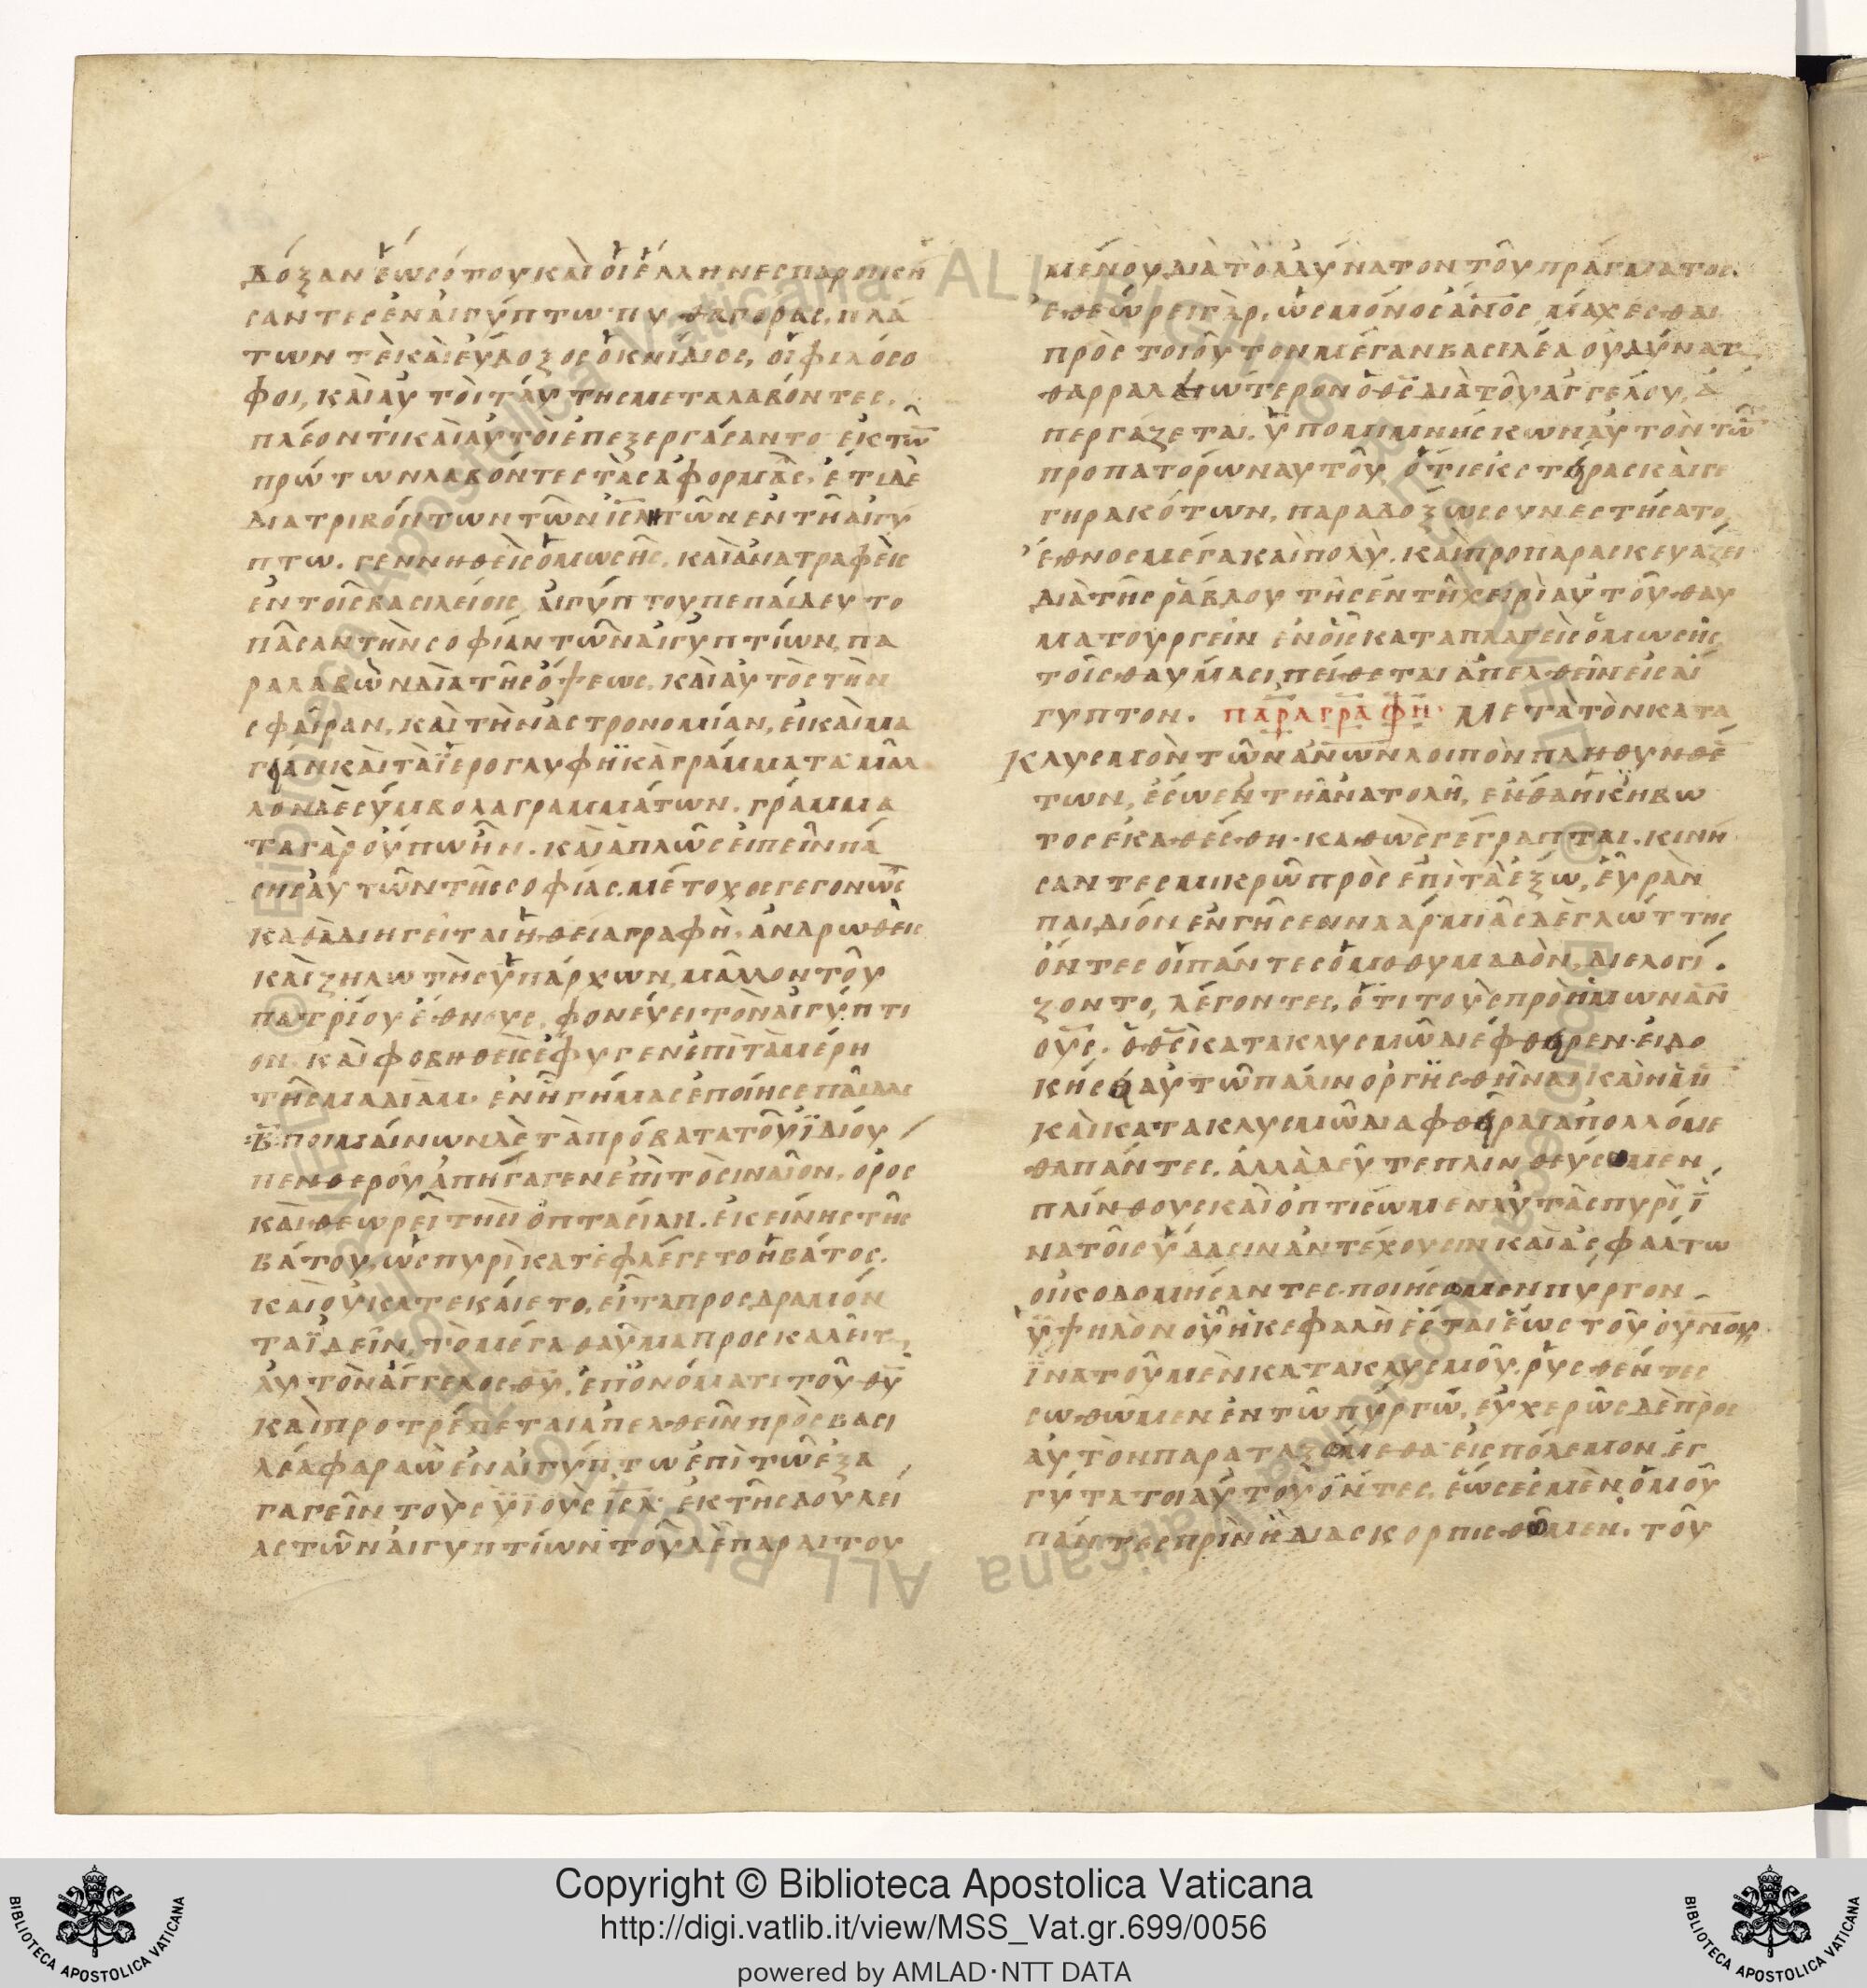 δόξαν ἕως ὅτου καὶ οἱ ἕλληνες παροικῆ
σαντες ἐν αἰγύπτω· πυθαγόρας, πλά
των τὲ καὶ εὔδοξος ὁ κνίδιος, οἱ φιλόσο
φοι, καὶ αὐτοὶ ταύτης μεταλαβόντες,
πλέον τί καὶ αὐτοὶ ἐπεξεργάσαντο ἐκ τῶ̅
πρώτων λαβόντες τὰς ἀφορμάς, ἔτι δὲ
διατριβόντων τῶν ιη̅λ τῶν ἐν τῆ αἰγύ
πτω. γεννηθεὶς ὁ μωσῆς, καὶ ἀνατραφεὶς
ἐν τοῖς βασιλείοις αἰγύπτου πεπαίδευτο
πᾶσαν τὴν σοφίαν τῶν αἰγυπτίων, πα
ραλαβὼν διὰ τῆς ὄψεως, καὶ αὐτὸς τὴν
σφαῖραν, καὶ τὴν ἀστρονομίαν, εἰ καὶ μα
γίαν καὶ τὰ ἱερογλυφηκὰ γράμματα μᾶλ
λον δὲ σύμβολα γραμμάτων. γράμμα
τα γὰρ οὔπω ἦν. καὶ ἁπλῶς εἰπεῖν πά
σης αὐτῶν τῆς σοφίας μέτοχος γεγονὼς
καθὰ διηγεῖται ἡ θεία γραφὴ, ἀνδρωθεὶς
καὶ ζηλωτὴς ὑπάρχων, μᾶλλον τοῦ
πατρίου ἔθνους, φονεύει τὸν αἰγύπτι
ον. καὶ φοβηθεὶς ἔφυγεν ἐπὶ τὰ μέρη
τῆς μαδιὰμ· ἐν ἧ γήμας ἐποίησε παῖδας
β̅ ποιμαίνων δὲ τὰ πρόβατα τοῦ ἰδίου
πενθεροῦ ἀπήγαγεν ἐπὶ τὸ σιναῖον ὄρος
καὶ θεωρεῖ τὴν ὀπτασίαν ἐκείνης τῆς
βάτου, ὡς πυρὶ κατεφλέγετο ἡ βάτος.
καὶ οὐ κατεκαίετο, εἶτα προσδραμόν
τα ἰδεῖν, τὸ μέγα θαῦμα προσκαλεῖτ
αὐτὸν ἄγγελος θυ̅, ἐπ ὀνόματι τοῦ θυ̅
καὶ προτρέπεται ἀπελθεῖν πρὸς βασι
λέα φαραὼ ἐν αἰγύπτω ἐπὶ τῶ ἐξα
γαγεῖν τοὺς υἱοὺς ιη̅λ ἐκ τῆς δουλεί
ας τῶν αἰγυπτίων τοῦ δὲ παραιτου
μένου διὰ τὸ ἀδύνατον τοῦ πράγματος.
ἐθεώρει γὰρ, ὡς μόνος α̅ν̅ο̅ς μάχεσθαι
πρὸς τοιοῦτον μέγαν βασιλέα οὐ δύνατ
θαρραλεώτερον ὁ θς̅ διὰ τοῦ ἀγγέλου, ἀ
περγάζεται. ὑπομιμνήσκων αὐτὸν τῶ̅
προπατόρων αὐτοῦ, ὅτι ἐκ στείρας καὶ γε
γηρακότων, παραδόξως συνεστήσατο,
ἔθνος μέγα καὶ πολὺ. καὶ προπαρασκευάζει
διὰ τῆς ῥάβδου τῆς ἐν τῆ χειρὶ αὐτοῦ θαυ
ματουργεῖν ἐν οἷς καταπλαγεὶς ὁ μωσῆς
τοῖς θαύμασι πείθεται ἀπελθεῖν εἰς αἴ
γυπτον. παραγραφη· Μετὰ τὸν κατα
Κλυσμὸν τῶν α̅ν̅ω̅ν λοιπὸν πληθυνθέ̅
των, ἔσω ἐν τῆ ἀνατολῆ, ἔνθα ἡ κιβω
τὸς ἐκαθέσθη· καθὼς γέγραπται. κινή
σαντες μικρῶ πρὸς ἐπὶ τὰ ἔξω, εὗρὰν
παιδίον ἐν γῆ σενναὰρ μιᾶς δὲ γλώττης
ὄντες οἱ πάντες ὁμοθυμαδὸν, διελογί
ζοντο, λέγοντες, ὅτι τοὺς πρὸ ἡμῶν αν̅
ους̅. ὁ θς̅ κατακλυσμῶ διέφθειρεν· εἰ δο
κήσει αὐτῶ πάλιν ὀργισθῆναι καὶ ἡμῖν
καὶ κατακλυσμῶ διαφθεῖραι ἀπολλύμε
θα πάντες. ἀλλὰ δεῦτε πλινθεύσωμεν,
πλίνθους καὶ ὀπτίσωμεν αὐτὰς πυρὶ ἵ
να τοῖς ὕδασιν ἀντέχουσιν καὶ ἀσφάλτω
οἰκοδομήσαντες ποιήσωμεν πυργον
ὑψηλὸν οὗ ἡ κεφαλὴ ἔσται ἕως τοῦ ουν̅ου,
ἵνα τοῦ μὲν κατακλυσμοῦ. ῥυσθέντες
σωθῶμεν ἐν τῶ πύργω, εὐχερῶς δὲ πρὸς
αὐτὸν παραταξώμεθα εἰς πόλεμον. ἐγ
γύτατοι αὐτοῦ ὄντες, ἕως ἐσμὲν, ὁμοῦ
πάντες πρὶν ἢ διασκορπισθῶμεν. τοῦ
Copyright © Biblioteca Apostolica Vaticana
http://digi.vatlib.it/view/MSS_Vat.gr.699/0056
powered by AMLAD·NTT DATA
BIBLIOTECA APOSTOLICA VATICANA
BIBLIOTECA APOSTOLICA VATICANA